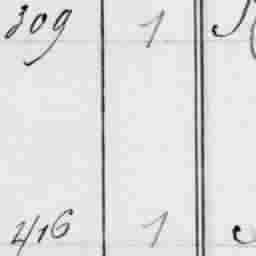 309 1
416 1